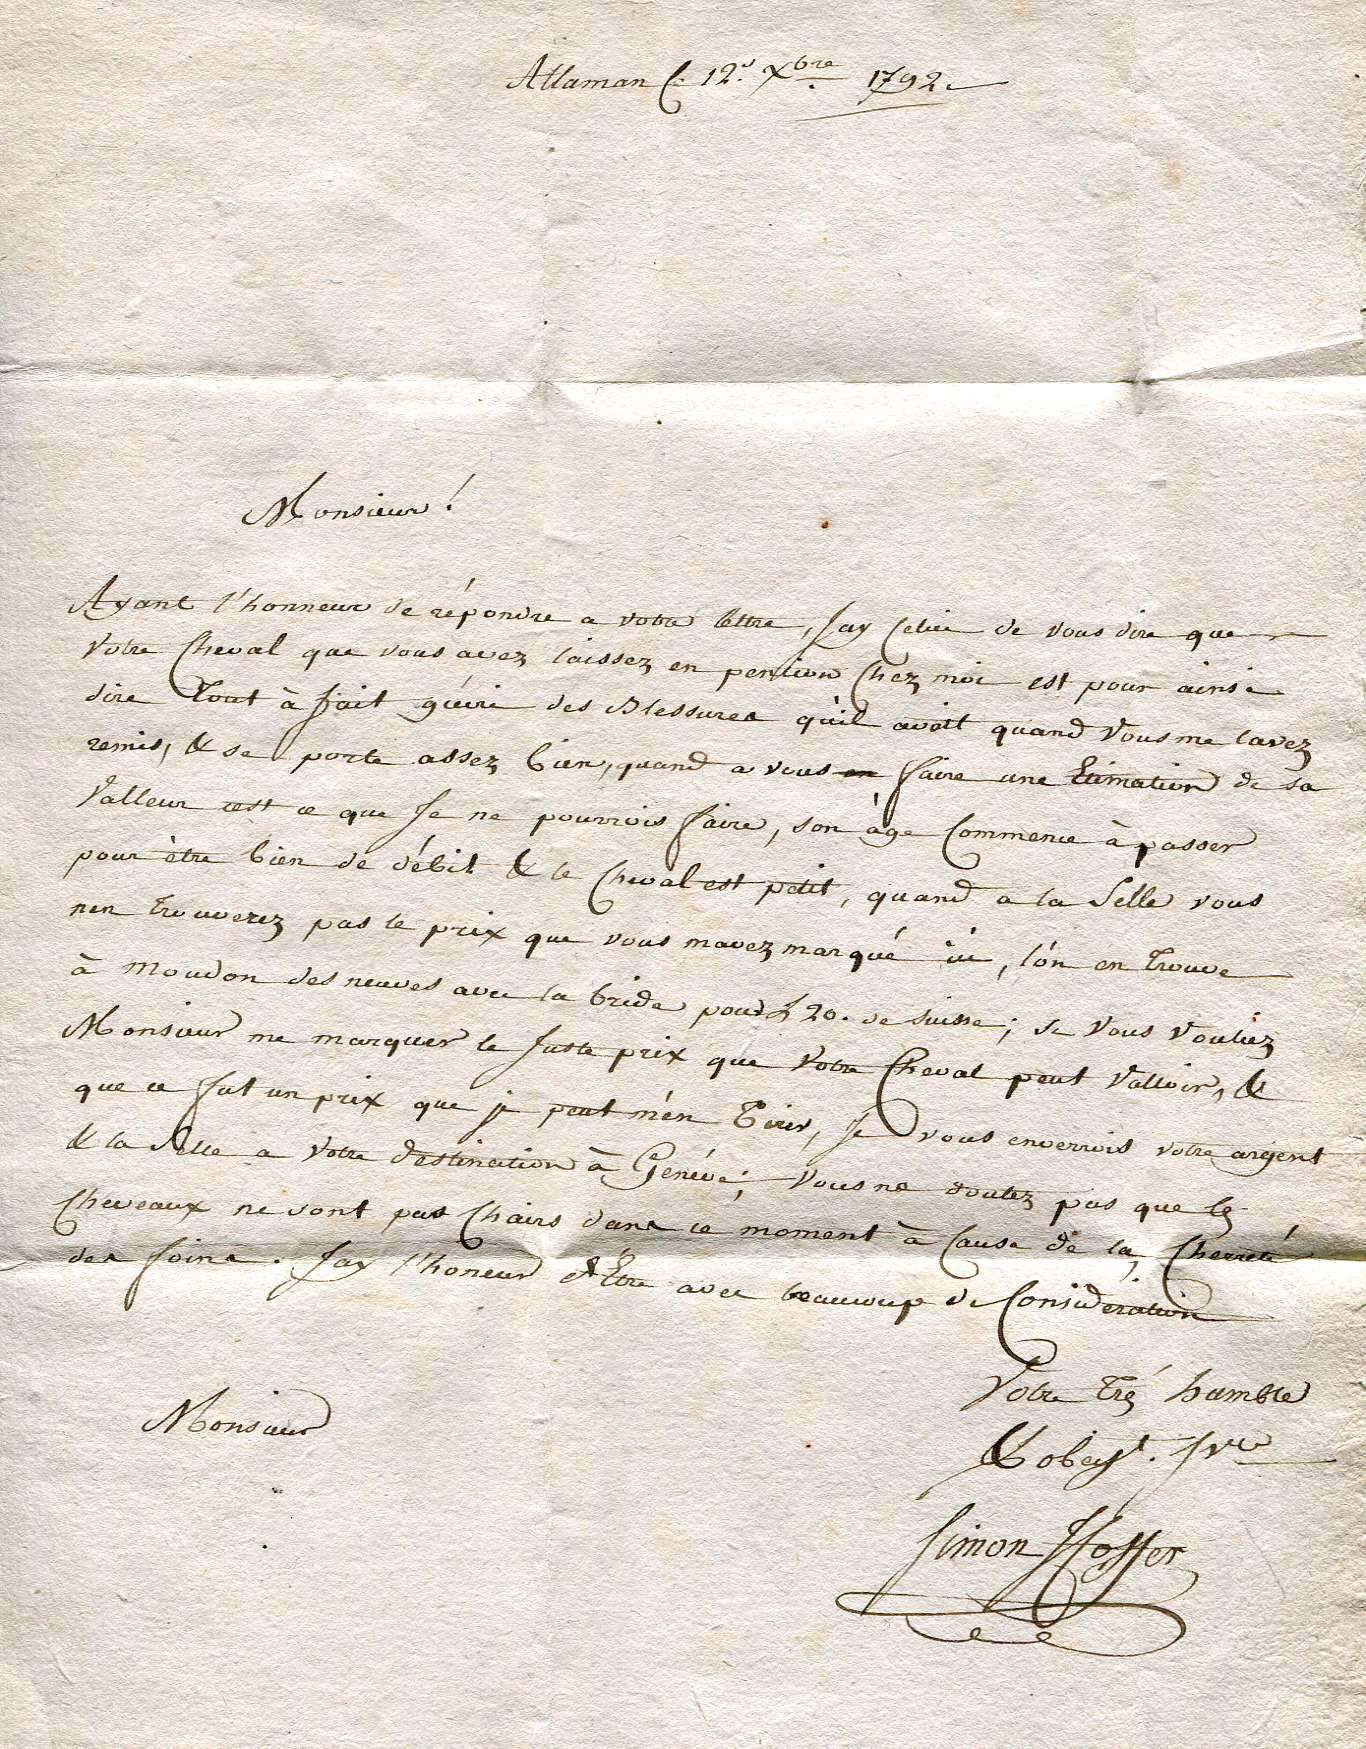 Allaman le 12.e Xbre 1792.
Monsieur!
Ayant l'honneur de répondre a votre lettre, Jay celui de vous dire que
Votre Cheval que vous avez laissez en pention Chez moi est pour ainsi
dire Tout à fait guèri des Blessures quil avoit quand Vous me lavez
remis, & se porte assez bien, quand a vous faire une Estimation de sa
Valleur cest ce que Je ne pourrois faire, son àge Commence à passer
pour ètre bien de débit & le Cheval est petit, quand a la Selle vous
nen trouverez pas le prix que vous mavez marqué ici, lón en trouve
à Moudon des neuves avec la bride pour L 20. de Suisse; Si Vous Vouliez
Monsieur me marquer le Juste prix que Votre Cheval peut Valloir, &
que ce fut un prix que je peut m'én Tirer, Je vous enverrois votre argent
& la Selle a Votre destination à Genéve; Vous ne doutez pas que les
Cheveaux ne sont pas Chairs dans ce moment à Cause de la Cherreté
des foins. Jay l'honeur d'Etre avec beaucoup de Considération
Votre Trés humble
Monsieur
& obeist. Sr
Simon Hoffer